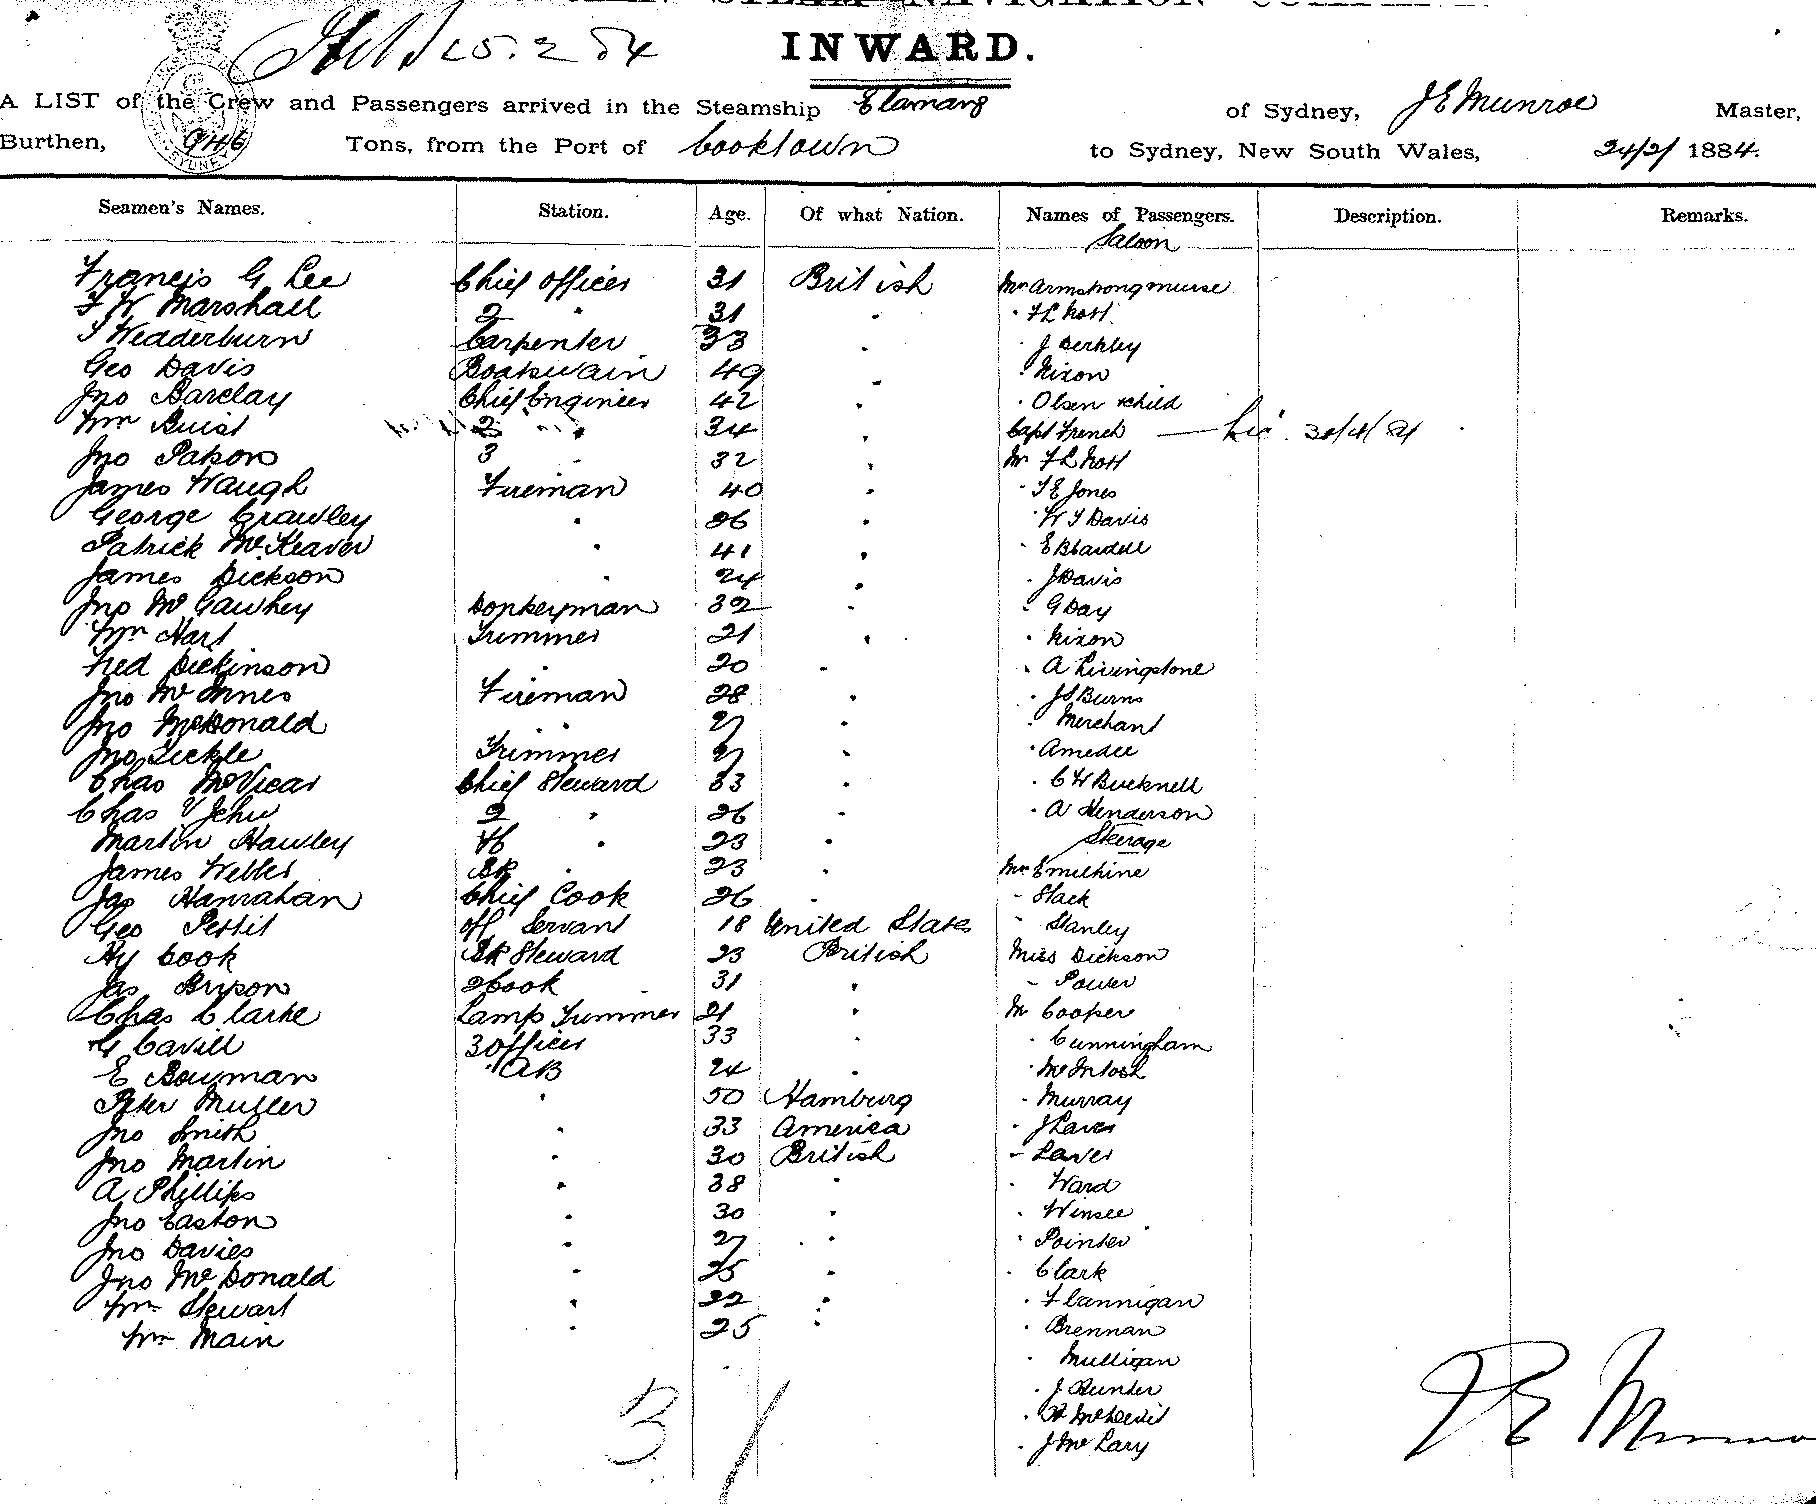 STEAM NAVIGATION
25.2.84
INWARD.
A LIST of the Crew and Passengers arrived in the Steamship Elamang of Sydney, J E Munroe Master,
Burthen, 946 Tons, from the Port of Cooktown to Sydney, New South Wales, 24/2/ 1884.
SYDNEY
Seamen's Names. Station. Age. Of what Nation. Names of Passengers. Description. Remarks.
Saloon
Francis G Lee Chief Officer 31 British Mr Armstrong nurse
F W Marshall 2 " 31 "
Wedderburn Carpenter 33 " " J Berkley
Geo Davis Boatswain 49 " " Nixon
Jno Barclay Chief Engineer 42 " " Olsen & child
Wm Buist 2 " " 34 " Capt French
Jno Paton 3 " 32 " Mr
James Waugh Fireman 40 " " Jones
George Crawley " 26 " " Davis
Patrick McKeaver " 41 " "
James Dickson " 24 " " J Davis
Jno McGawhey Donkeyman 32 " " G Day
Wm Hart Trimmer 21 " " Nixon
Fred Dickinson " 20 " " A Livingstone
Jno McInnes Fireman 28 " " Burns
Jno McDonald " 27 " " Merchant
Jno Trimmer 27 " " Amedee
Chas McVicar Chief Steward 33 " " C W Bucknell
Chas V Jehu 2 " 26 " " A Henderson
Martin Hawley " 23 " Steerage
James Webber " 23 " Mr
Jas Hanrahan Chief Cook 26 " " Slack
Geo Pettit Off Servant 18 United States " Stanley
Hy Cook Steward 23 British Miss Dickson
Jas Bryson 2 Cook 31 " " Power
Chas Clarke Lamp Trimmer 21 " Mr Cooper
G Cavill 3 Officer 33 " " Cunningham
E Bowman AB 24 " " McIntosh
Peter Muller " 50 Hamburg " Murray
Jno Smith " 33 America " J Laver
Jno Martin " 30 British " Laver
A Phillips " 38 " " Ward
Jno Easton " 30 " " Winsee
Jno Davies " 27 " " Pointer
Jno McDonald " 25 " " Clark
Wm Stewart " 22 " " Flannigan
Wm Main " 25 " " Brennan
" Mulligan
" J Hunter
"
" J McLary
J E Munroe